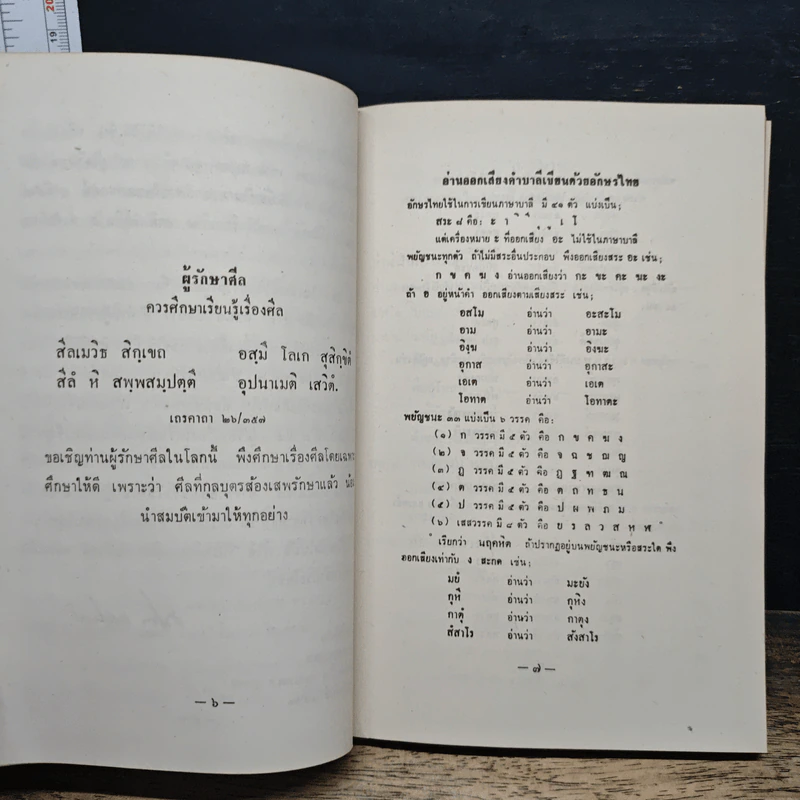 19
20
ผู้รักษาศีล
ควรศึกษาเรียนรู้เรื่องศีล
สีลเมวิธ สิกฺเขถ อสฺมึ โลเก สุสิกฺขิตํ
สีลํ หิ สพฺพสมฺปตฺตึ อุปนาเมติ เสวิตํ.
เถรคาถา ๒๖/๓๕๗
ขอเชิญท่านผู้รักษาศีลในโลกนี้ พึงศึกษาเรื่องศีลโดยเฉพาะ
ศึกษาให้ดี เพราะว่า ศีลที่กุลบุตรส้องเสพรักษาแล้ว น้อม
นำสมบัติเข้ามาให้ทุกอย่าง
— ๖ —
อ่านออกเสียงคำบาลีเขียนด้วยอักษรไทย
อักษรไทยใช้ในการเขียนภาษาบาลี มี ๔๑ ตัว แบ่งเป็น;
สระ ๘ คือ: ะ า ิ ี ุ ู เ โ
แต่เครื่องหมาย ะ ที่ออกเสียง อะ ไม่ใช้ในภาษาบาลี
พยัญชนะทุกตัว ถ้าไม่มีสระอื่นประกอบ พึงออกเสียงสระ อะ เช่น;
ก ข ค ฆ ง อ่านออกเสียงว่า กะ ขะ คะ ฆะ งะ
ถ้า อ อยู่หน้าคำ ออกเสียงตามเสียงสระ เช่น;
อสโม อ่านว่า อะสะโม
อาม อ่านว่า อามะ
อิงฺฆ อ่านว่า อิงฆะ
อุกาส อ่านว่า อุกาสะ
เอเต อ่านว่า เอเต
โอทาต อ่านว่า โอทาตะ
พยัญชนะ ๓๓ แบ่งเป็น ๖ วรรค คือ:
(๑) ก วรรค มี ๕ ตัว คือ ก ข ค ฆ ง
(๒) จ วรรค มี ๕ ตัว คือ จ ฉ ช ฌ ญ
(๓) ฏ วรรค มี ๕ ตัว คือ ฏ ฐ ฑ ฒ ณ
(๔) ต วรรค มี ๕ ตัว คือ ต ถ ท ธ น
(๕) ป วรรค มี ๕ ตัว คือ ป ผ พ ภ ม
(๖) เสสวรรค มี ๘ ตัว คือ ย ร ล ว ส ห ฬ ํ
เรียกว่า นฤคหิต ถ้าปรากฏอยู่บนพยัญชนะหรือสระใด พึง
ออกเสียงเท่ากับ ง สะกด เช่น;
มยํ อ่านว่า มะยัง
กุหึ อ่านว่า กุหิง
กาตุํ อ่านว่า กาตุง
สํสาโร อ่านว่า สังสาโร
— ๗ —